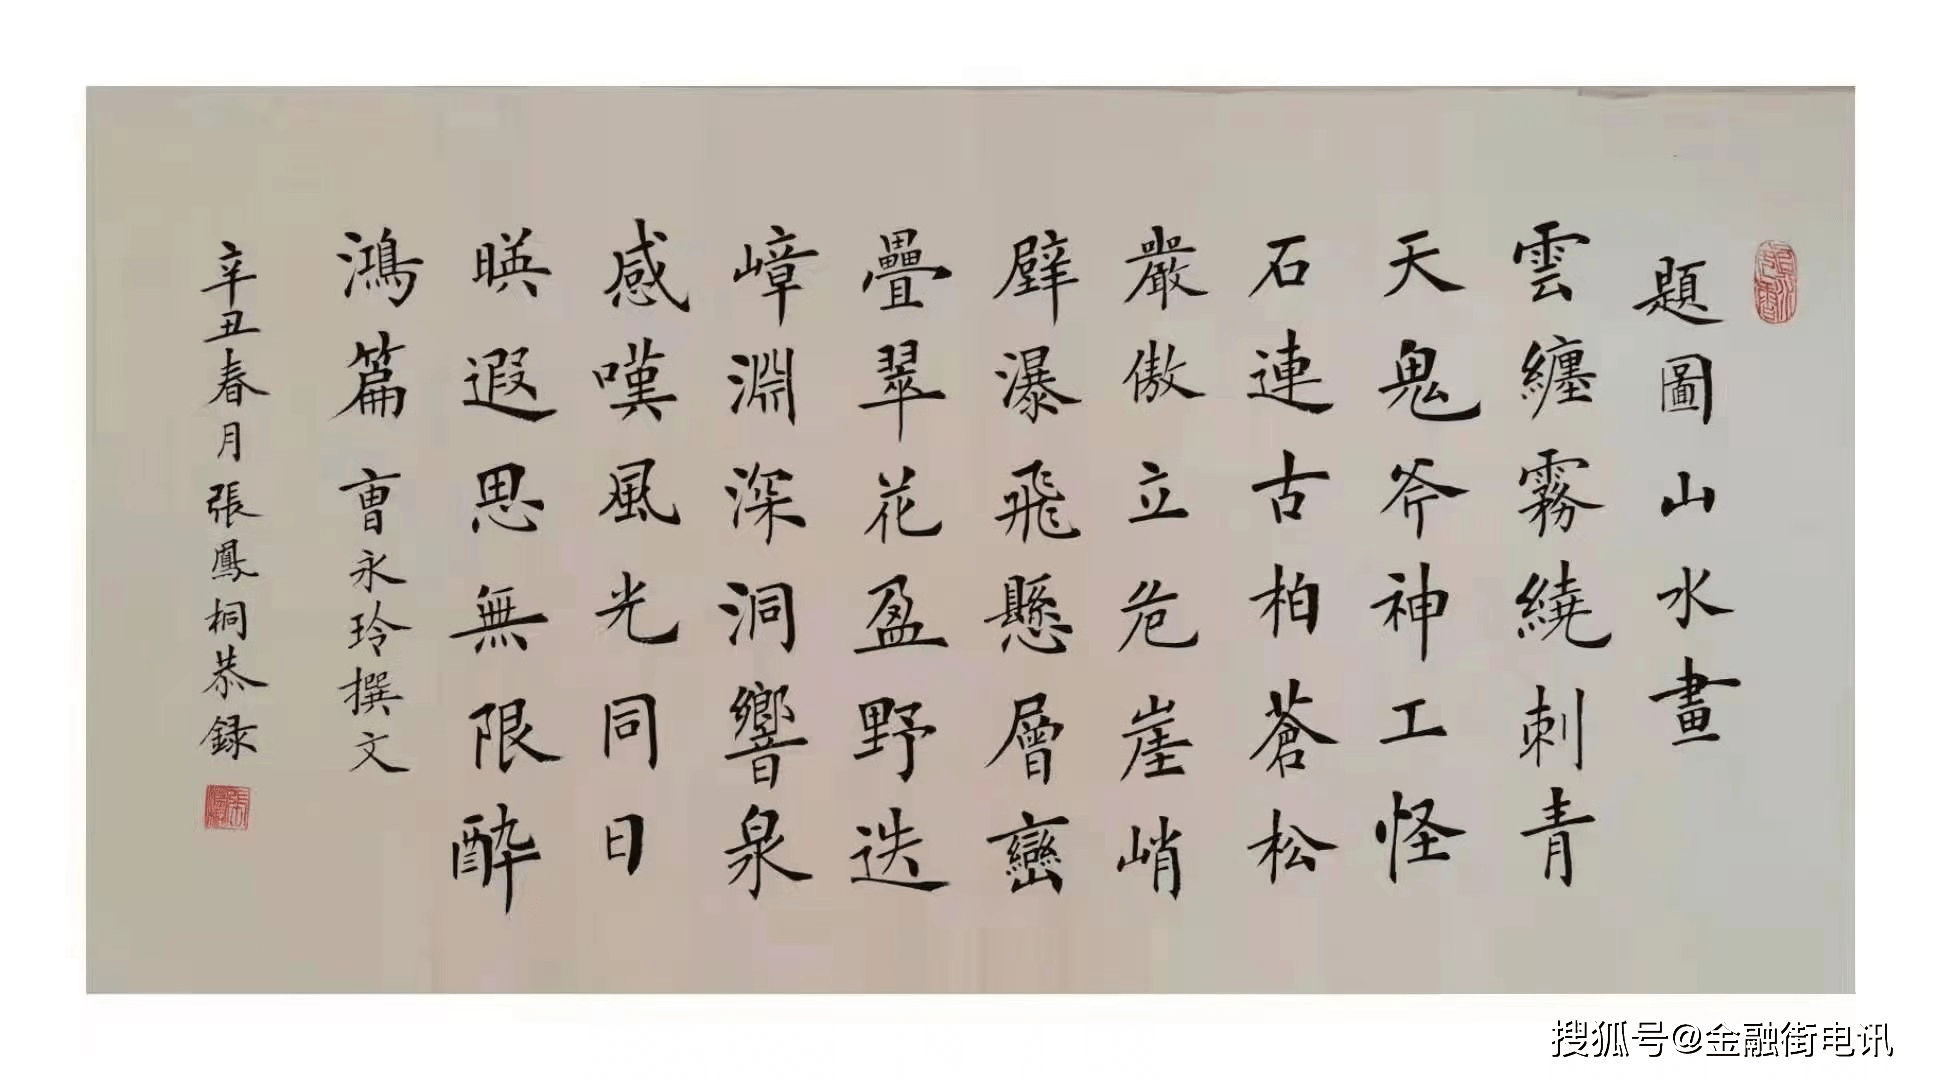 題圖山水畫
雲纏霧繞刺青
天鬼斧神工怪
石連古柏蒼松
嚴傲立危崖峭
壁瀑飛懸層巒
疊翠花盈野迭
嶂淵深洞響泉
感嘆風光同日
暎遐思無限醉
鴻篇 曺永玲撰文
辛丑春月張鳳桐恭録
搜狐号@金融街电讯